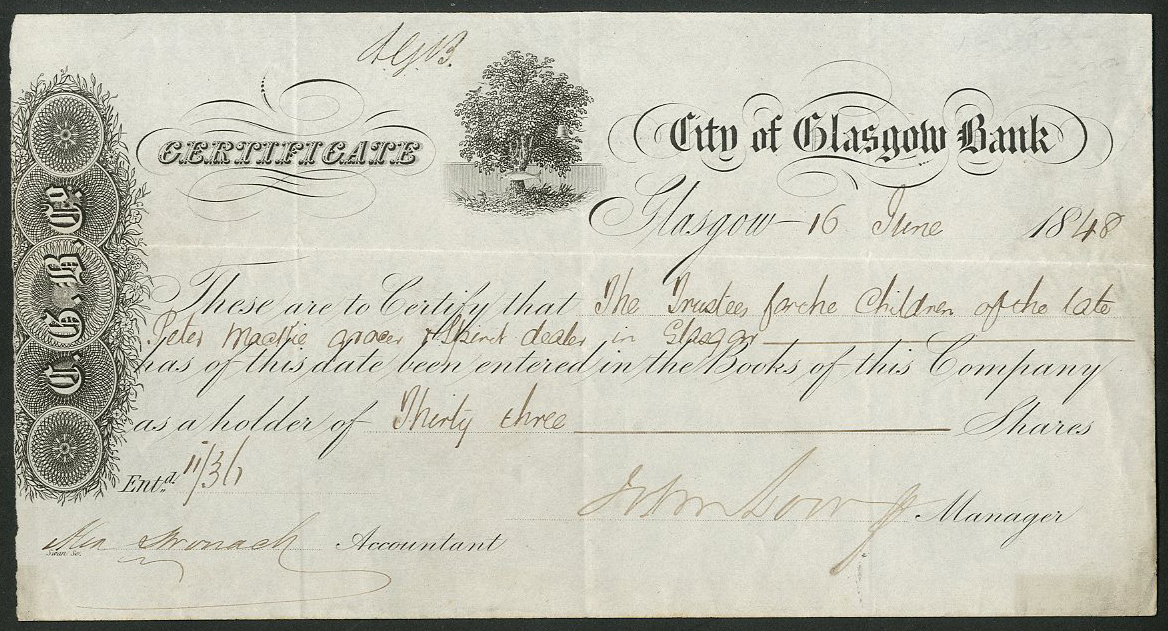 CERTIFICATE
City of Glasgow Bank
C.G.B.Co.
Glasgow 16 June 1848
These are to Certify that The Trustees for the Children of the late
Peter Mackie grocer & Spirit dealer in Glasgow
has of this date been entered in the Books of this Company
as a holder of Thirty three Shares
Ent.d 11/36
John Low Manager
Alex Stronach Accountant